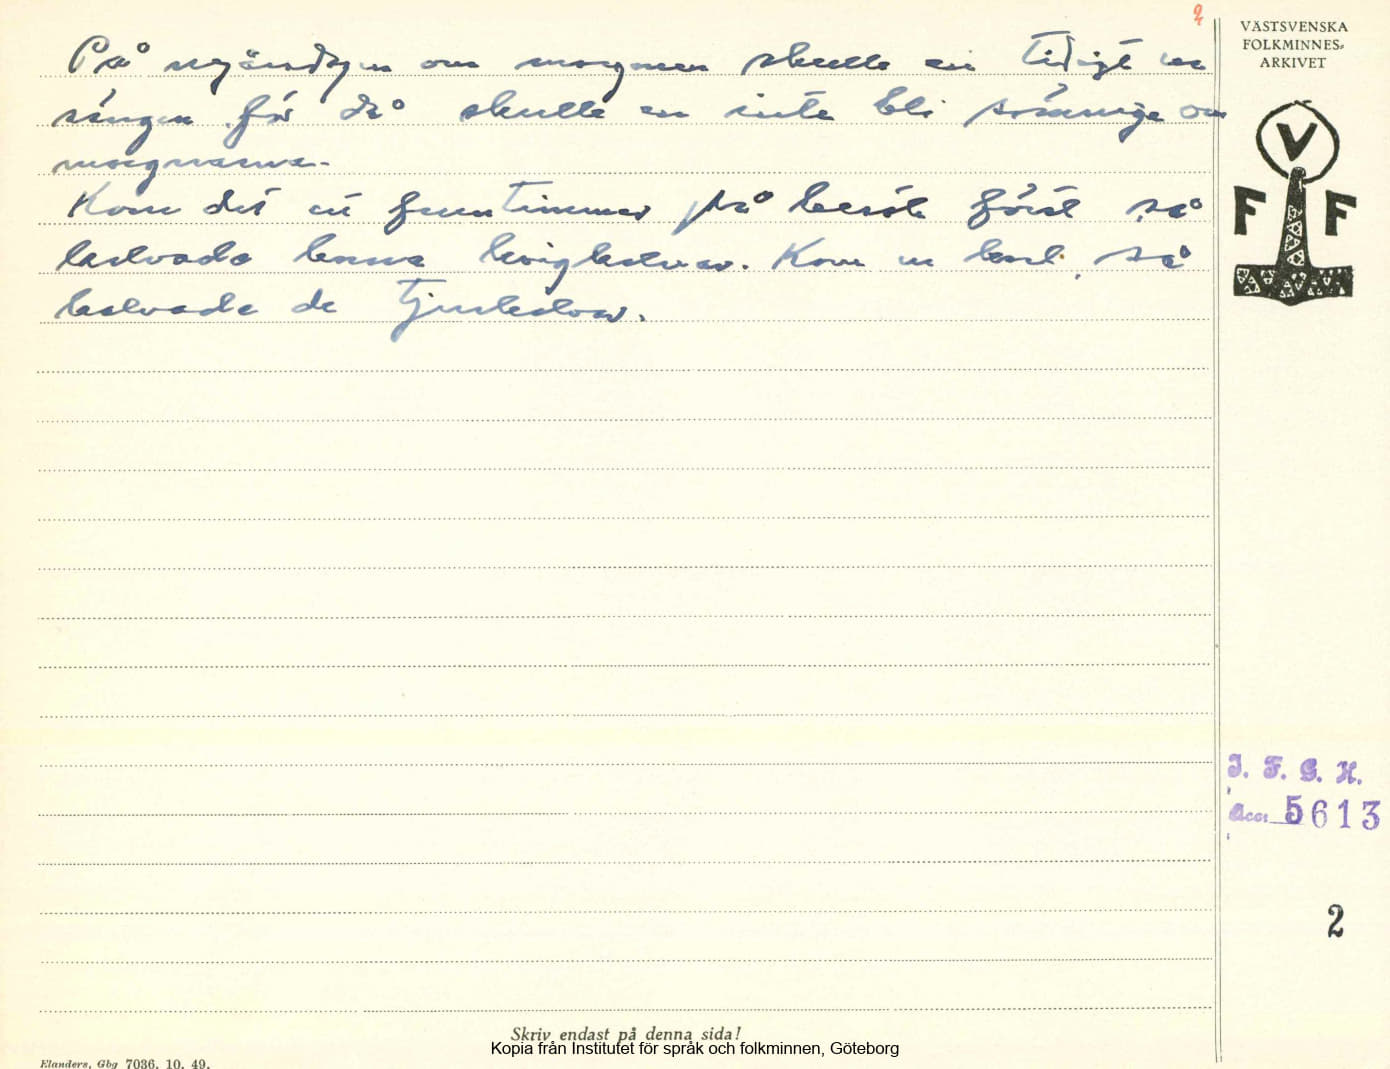 2
VÄSTSVENSKA
FOLKMINNES-
ARKIVET
På nyårsdagen om morgonen skulle en tidigt ur
sängen för då skulle en inte bli sömnige om
morgnarna.
Kom det ett fruntimmer på besök först så
kalvade korna kvigkalvar. Kom en karl, så
kalvade de tjurkalvar.
V
F F
I. F. G. H.
Acc. 5613
2
Skriv endast på denna sida!
Kopia från Institutet för språk och folkminnen, Göteborg
Elanders, Gbg 7036. 10. 49.